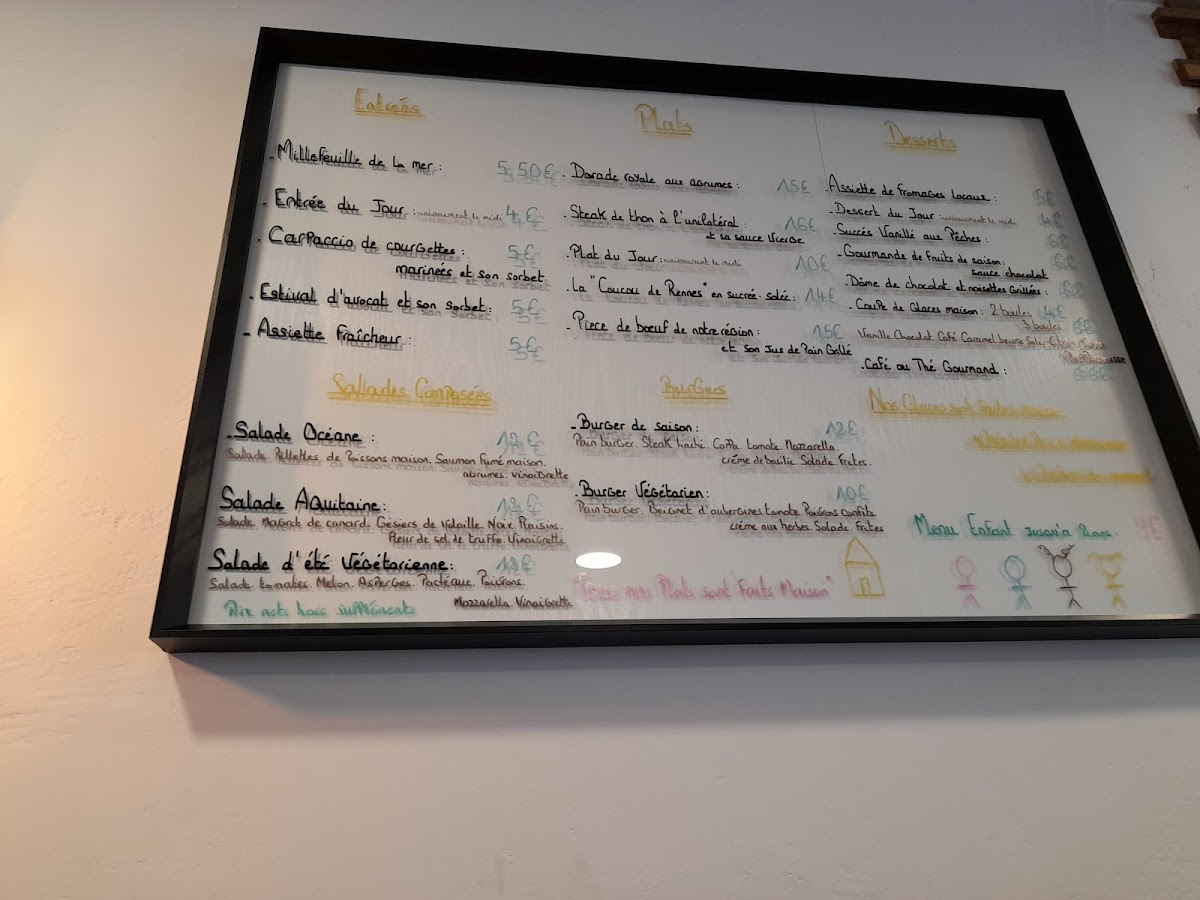 Entrées
- Millefeuille de la mer : 5,50€
- Entrée du Jour : uniquement le midi 4€
- Carpaccio de courgettes : 5€
marinées et son sorbet
- Estival d'avocat et son sorbet : 5€
- Assiette Fraîcheur : 5€
Salades Composées
- Salade Océane : 12€
Salade. Rillettes de Poissons maison. Saumon Fumé maison.
agrumes. Vinaigrette
Salade Aquitaine :
Salade. Magret de canard. Gésiers de volaille. Noix. Raisins.
Fleur de sel de truffe. Vinaigrette
Salade d'été Végétarienne :
Salade. tomates. Melon. Asperges. Poivrons.
Mozzarella. Vinaigrette
Prix nets hors suppléments
Plats
- Dorade royale aux agrumes : 15€
- Steak de thon à l'unilatéral : 16€
et sa sauce Vierge
- Plat du Jour : uniquement le midi 10€
- La "Coucou de Rennes" en sucré-salée : 14€
- Pièce de boeuf de notre région : 15€
et son Jus de Pain Grillé
Burgers
- Burger de saison : 12€
Pain burger. Steak haché. Coppa. tomate. Mozzarella.
crème de basilic. Salade. Frites.
- Burger Végétarien : 10€
Pain burger. Beignet d'aubergines. tomate. Poivrons confits
crème aux herbes. Salade. Frites
"Tous nos Plats sont "Faits Maison"
Desserts
- Assiette de fromages locaux : 5€
- Dessert du Jour : uniquement le midi 4€
- Succés Vanillé aux Pêches : 6€
- Gourmande de fruits de saison : 6€
sauce chocolat
- Dôme de chocolat et noisettes Grillées : 6€
- Coupe de Glaces maison : 2 boules 4€
3 boules
Vanille Chocolat Café Caramel beurre Salé
- Café ou Thé Gourmand :
Nos Glaces sont faites
Menu Enfant jusqu'à ans : 9€